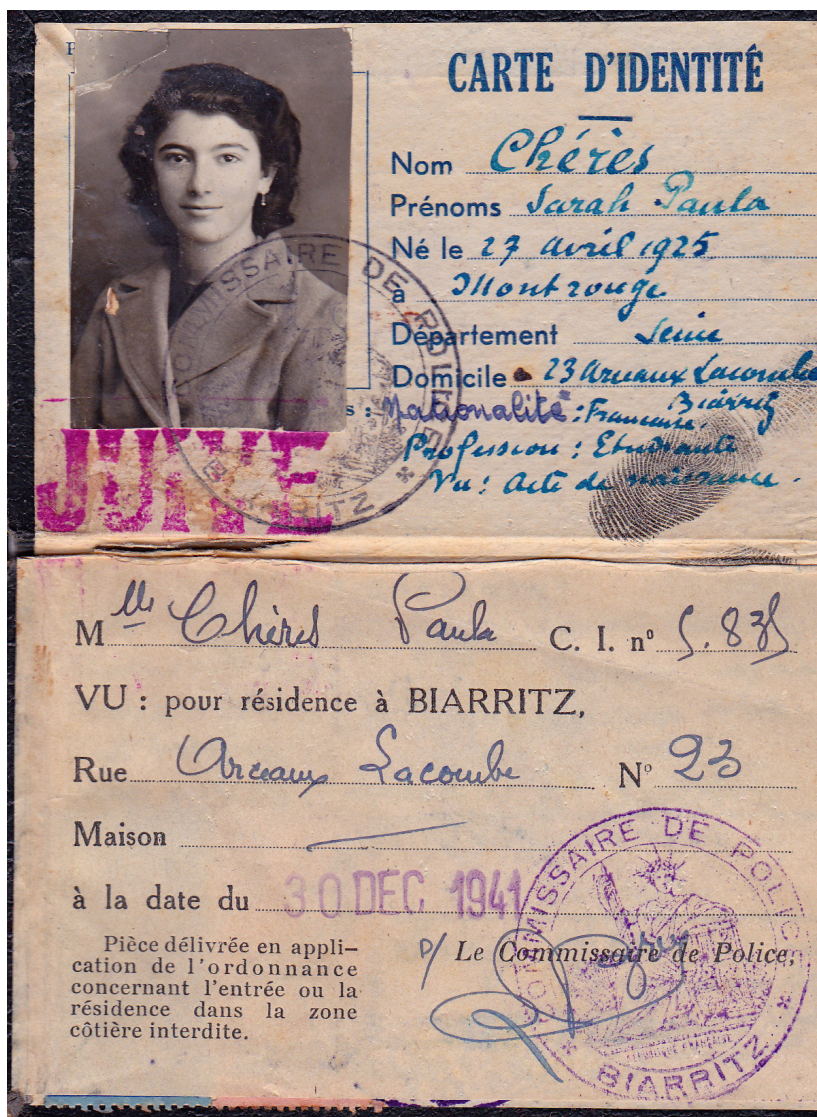 CARTE D'IDENTITÉ
Nom Chérès
Prénoms Sarah Paula
Né le 27 avril 1925
à Montrouge
Département Seine
Domicile 23 Arceaux Lacombe
Biarritz
s : Nationalité : Française.
Profession : Etudiante
Vu : Acte de naissance.
JUIVE
COMMISSAIRE DE POLICE
BIARRITZ
Mlle Chérès Paula C. I. nº 5.835
VU : pour résidence à BIARRITZ,
Rue Arceaux Lacombe Nº 23
Maison
à la date du 30 DEC 1941
Pièce délivrée en appli-
cation de l'ordonnance
concernant l'entrée ou la
résidence dans la zone
côtière interdite.
P/ Le Commissaire de Police,
COMMISSAIRE DE POLICE
BIARRITZ